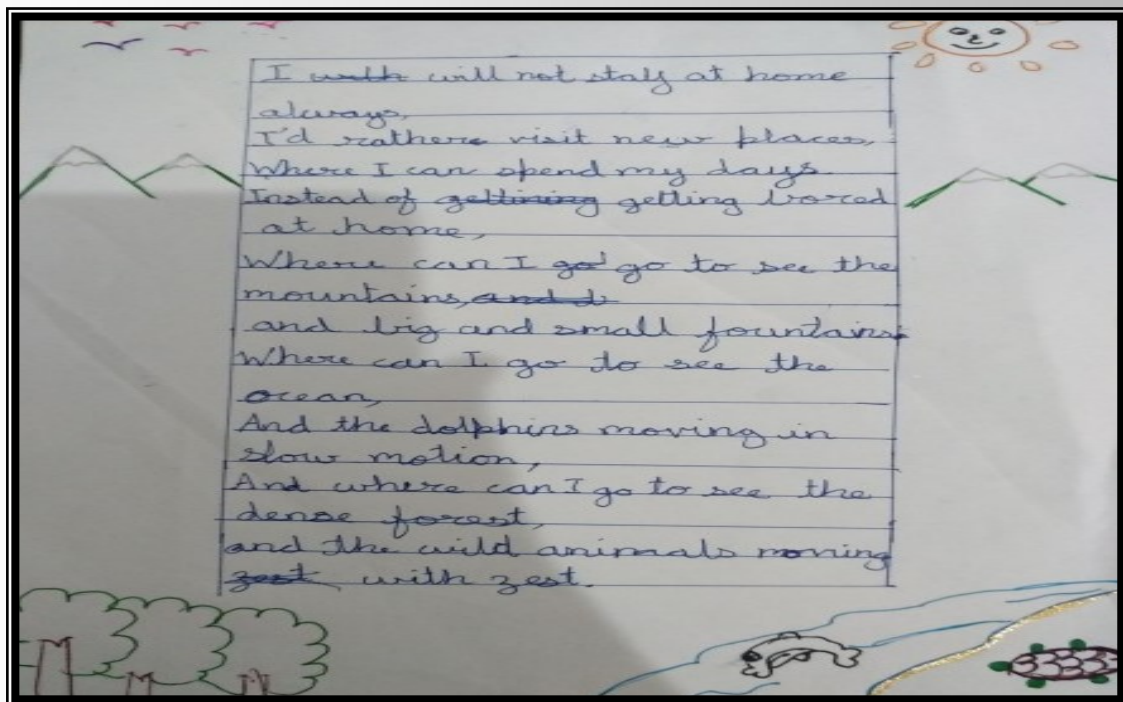 I will not stay at home
always,
I'd rathere visit new places,
Where I can spend my days.
Instead of gettining getting bored
at home,
Where can I go go to see the
mountains, and
and big and small fountains.
Where can I go to see the
ocean,
And the dolphins moving in
slow motion,
And where can I go to see the
dense forest,
and the wild animals moving
zest with zest.